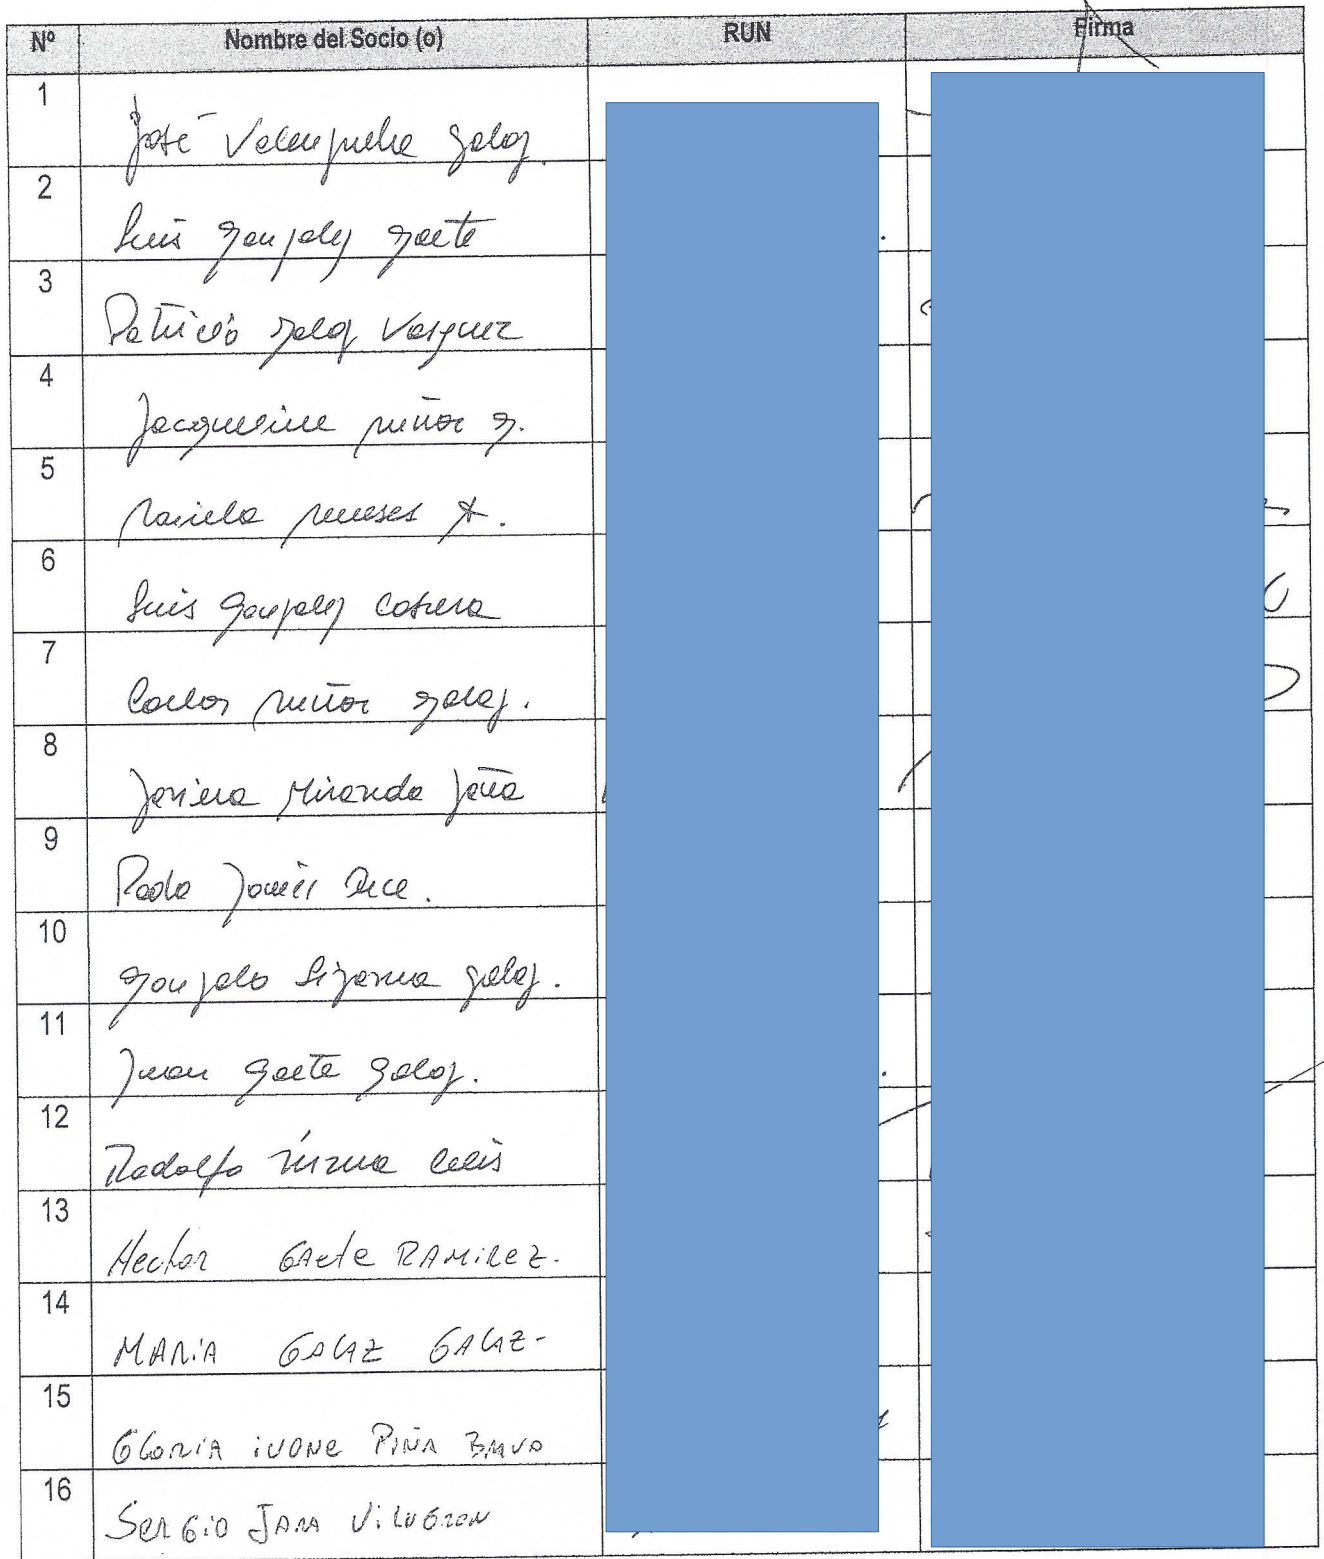 Nº Nombre del Socio (o) RUN Firma
1 José Valenzuela Galaz.
2 Luis Gonzalez Gaete
3 Patricio Galaz Vasquez
4 Jacqueline Muñoz G.
5 Mariela Meneses A.
6 Luis Gonzalez
7 Carlos Muñoz Galaz.
8 Javiera Miranda
9
10 Gonzalo Lizama Galaz.
11 Juan Gaete Galaz.
12 Rodolfo
13 Hector GAete RAMiRez.
14 MARiA GALAZ GALAZ-
15 GLORiA iVONe PiÑA BRAVO
16 SeRGiO JARA ViLUGRON